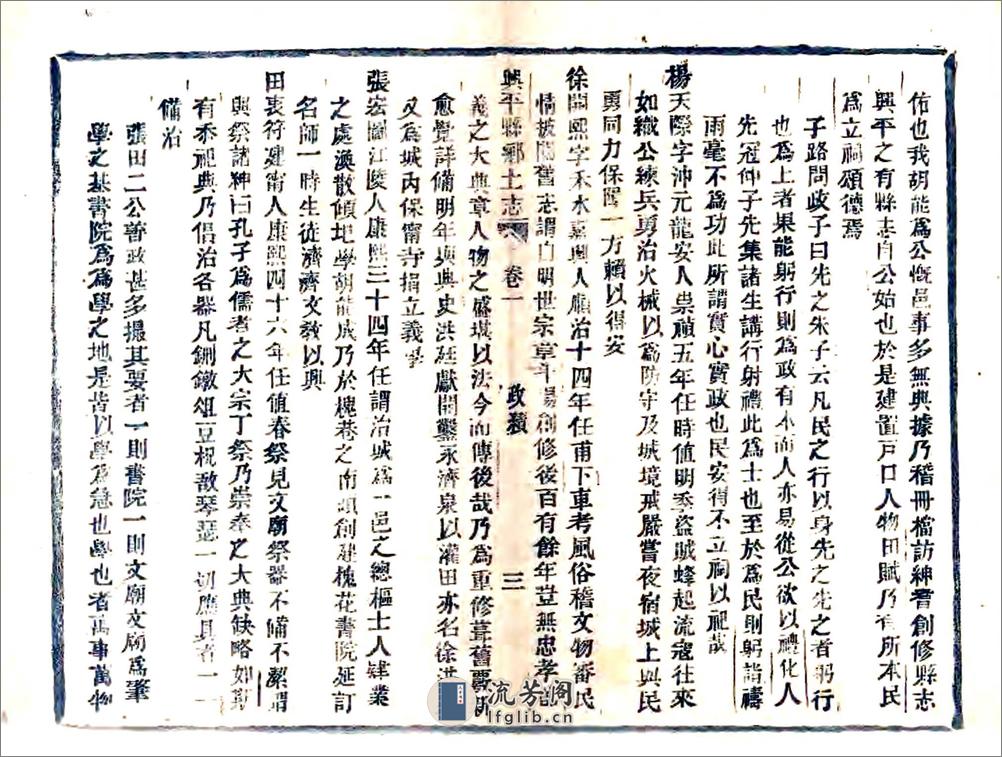 佑也我胡能爲公慨邑事多無典據乃稽冊檔訪紳耆創修縣志
興平之有縣志自公始也於是建置戸口人物田賦乃有所本民
爲立祠頌德焉
子路問政子曰先之朱子云凡民之行以身先之先之者躬行
也爲上者果能躬行則爲政有本而人亦易從公欲以禮化人
先冠仲子先集諸生講行射禮此爲士也至於爲民則躬詣禱
雨毫不爲功此所謂實心實政也民安得不立祠以祀哉
楊天際字沖元龍安人崇禎五年任時值明季盜賊蜂起流寇往來
如織公練兵勇治火械以爲防守及城境戒嚴嘗夜宿城上與民
勇同力保障一方賴以得安
徐開熙字禾水嘉興人順治十四年任甫下車考風俗稽文物審民
情披閱舊志謂自明世宗章平創修後百有餘年豈無忠孝節
興平縣鄉土志 卷一 政績 三
義之大典章人物之盛堪以法今而傳後哉乃爲重修葺舊要新
愈覺詳備明年與典史洪廷獻開鑿永濟泉以灌田亦名徐洪
又爲城內保甯寺捐立義學
張宏圖江陵人康熙三十四年任謂治城爲一邑之總樞士人肄業
之處渙散傾圯學胡能成乃於槐巷之南頭創建槐花書院延訂
名師一時生徒濟濟文敎以興
田裒符建甯人康熙四十六年任值春祭見文廟祭器不備不潔謂
與祭諸紳曰孔子爲儒者之大宗丁祭乃崇奉之大典缺略如斯
有忝祀典乃倡治各器凡鉶鐓俎豆柷敔琴瑟一切應具者一一
備治
張田二公善政甚多撮其要者一則書院一則文廟文廟爲肇
學之基書院爲爲學之地是皆以學爲急也學也者萬事萬物
流芳閣
lfglib.cn